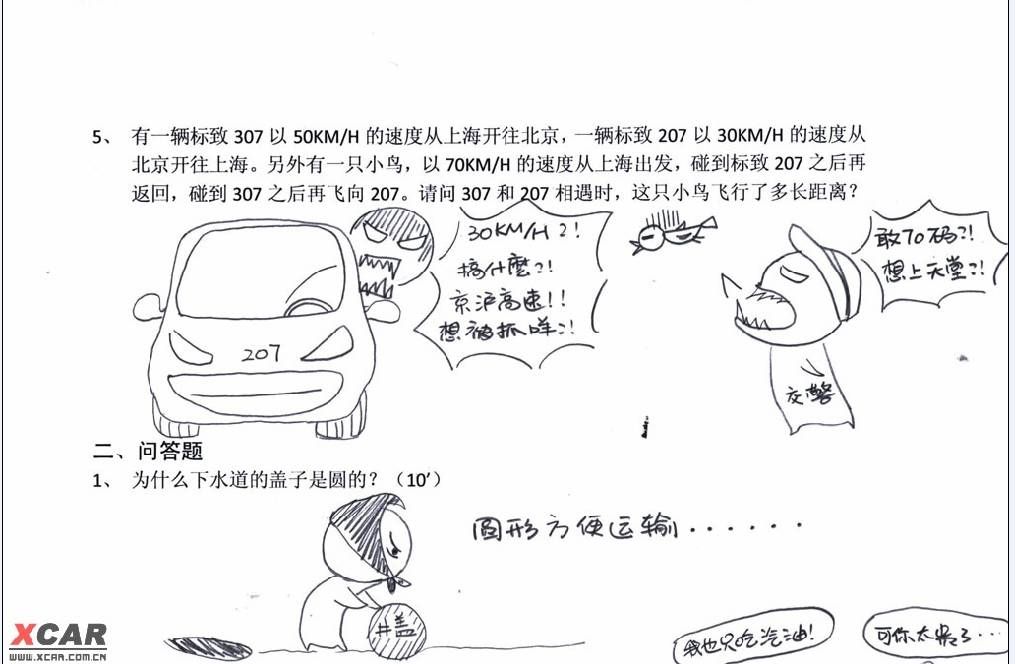 5、 有一辆标致 307 以 50KM/H 的速度从上海开往北京，一辆标致 207 以 30KM/H 的速度从
北京开往上海。另外有一只小鸟，以 70KM/H 的速度从上海出发，碰到标致 207 之后再
返回，碰到 307 之后再飞向 207。请问 307 和 207 相遇时，这只小鸟飞行了多长距离？
30KM/H?!
搞什麼?!
京沪高速!!
想被抓咩?!
敢70码?!
想上天堂?!
207
交警
二、问答题
1、 为什么下水道的盖子是圆的？（10’）
圆形方便运输······
井盖
我也只吃汽油!
可你太
了...
XCAR
WWW.XCAR.COM.CN